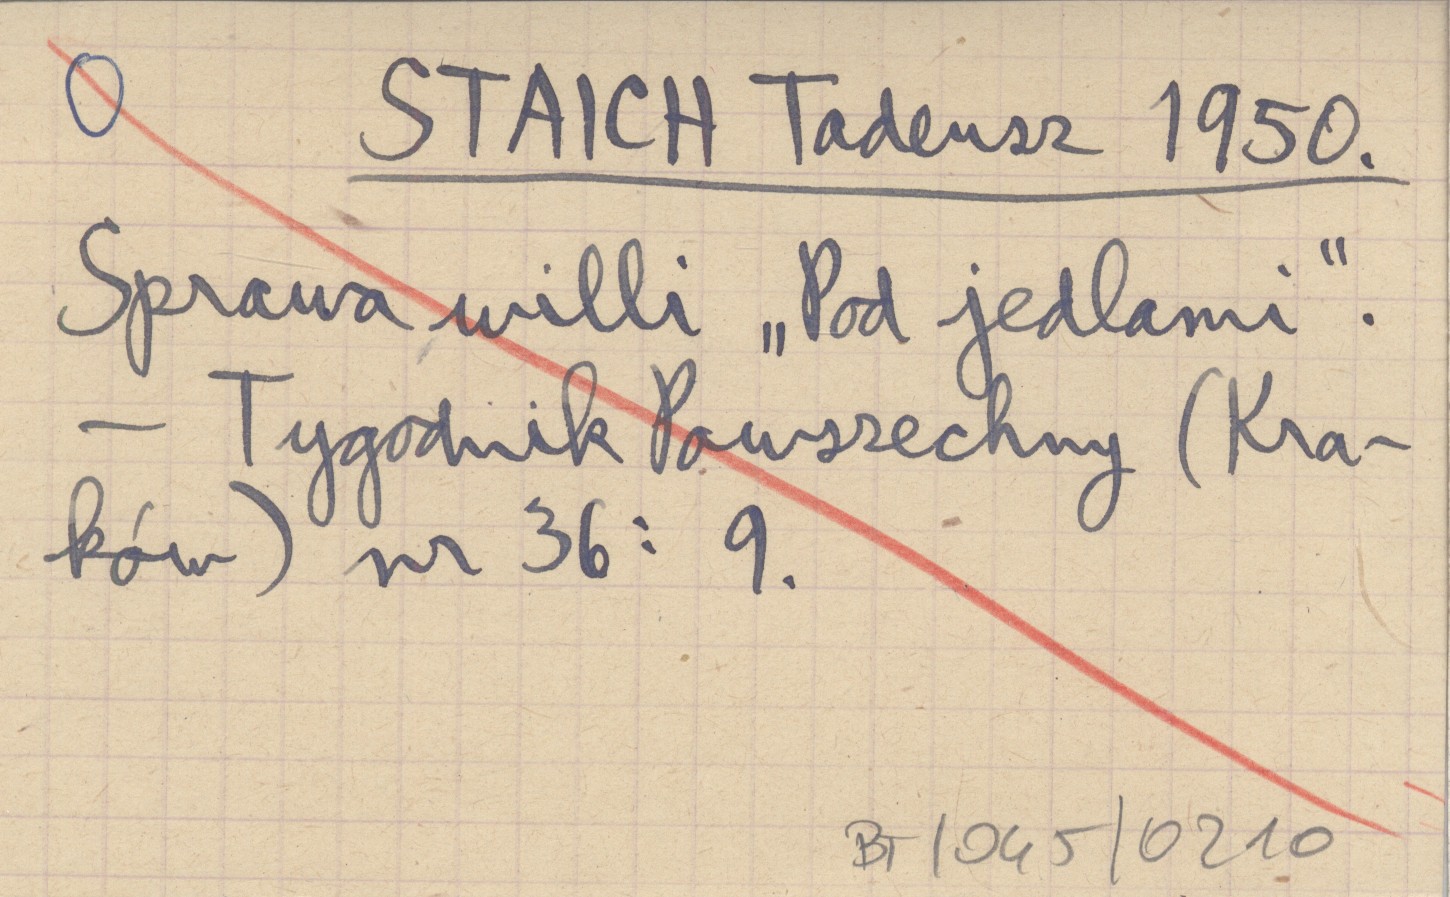 O STAICH Tadeusz 1950.
Sprawa willi „Pod jedlami“.
— Tygodnik Powszechny (Kra-
ków) nr 36: 9.
BT/045/0210